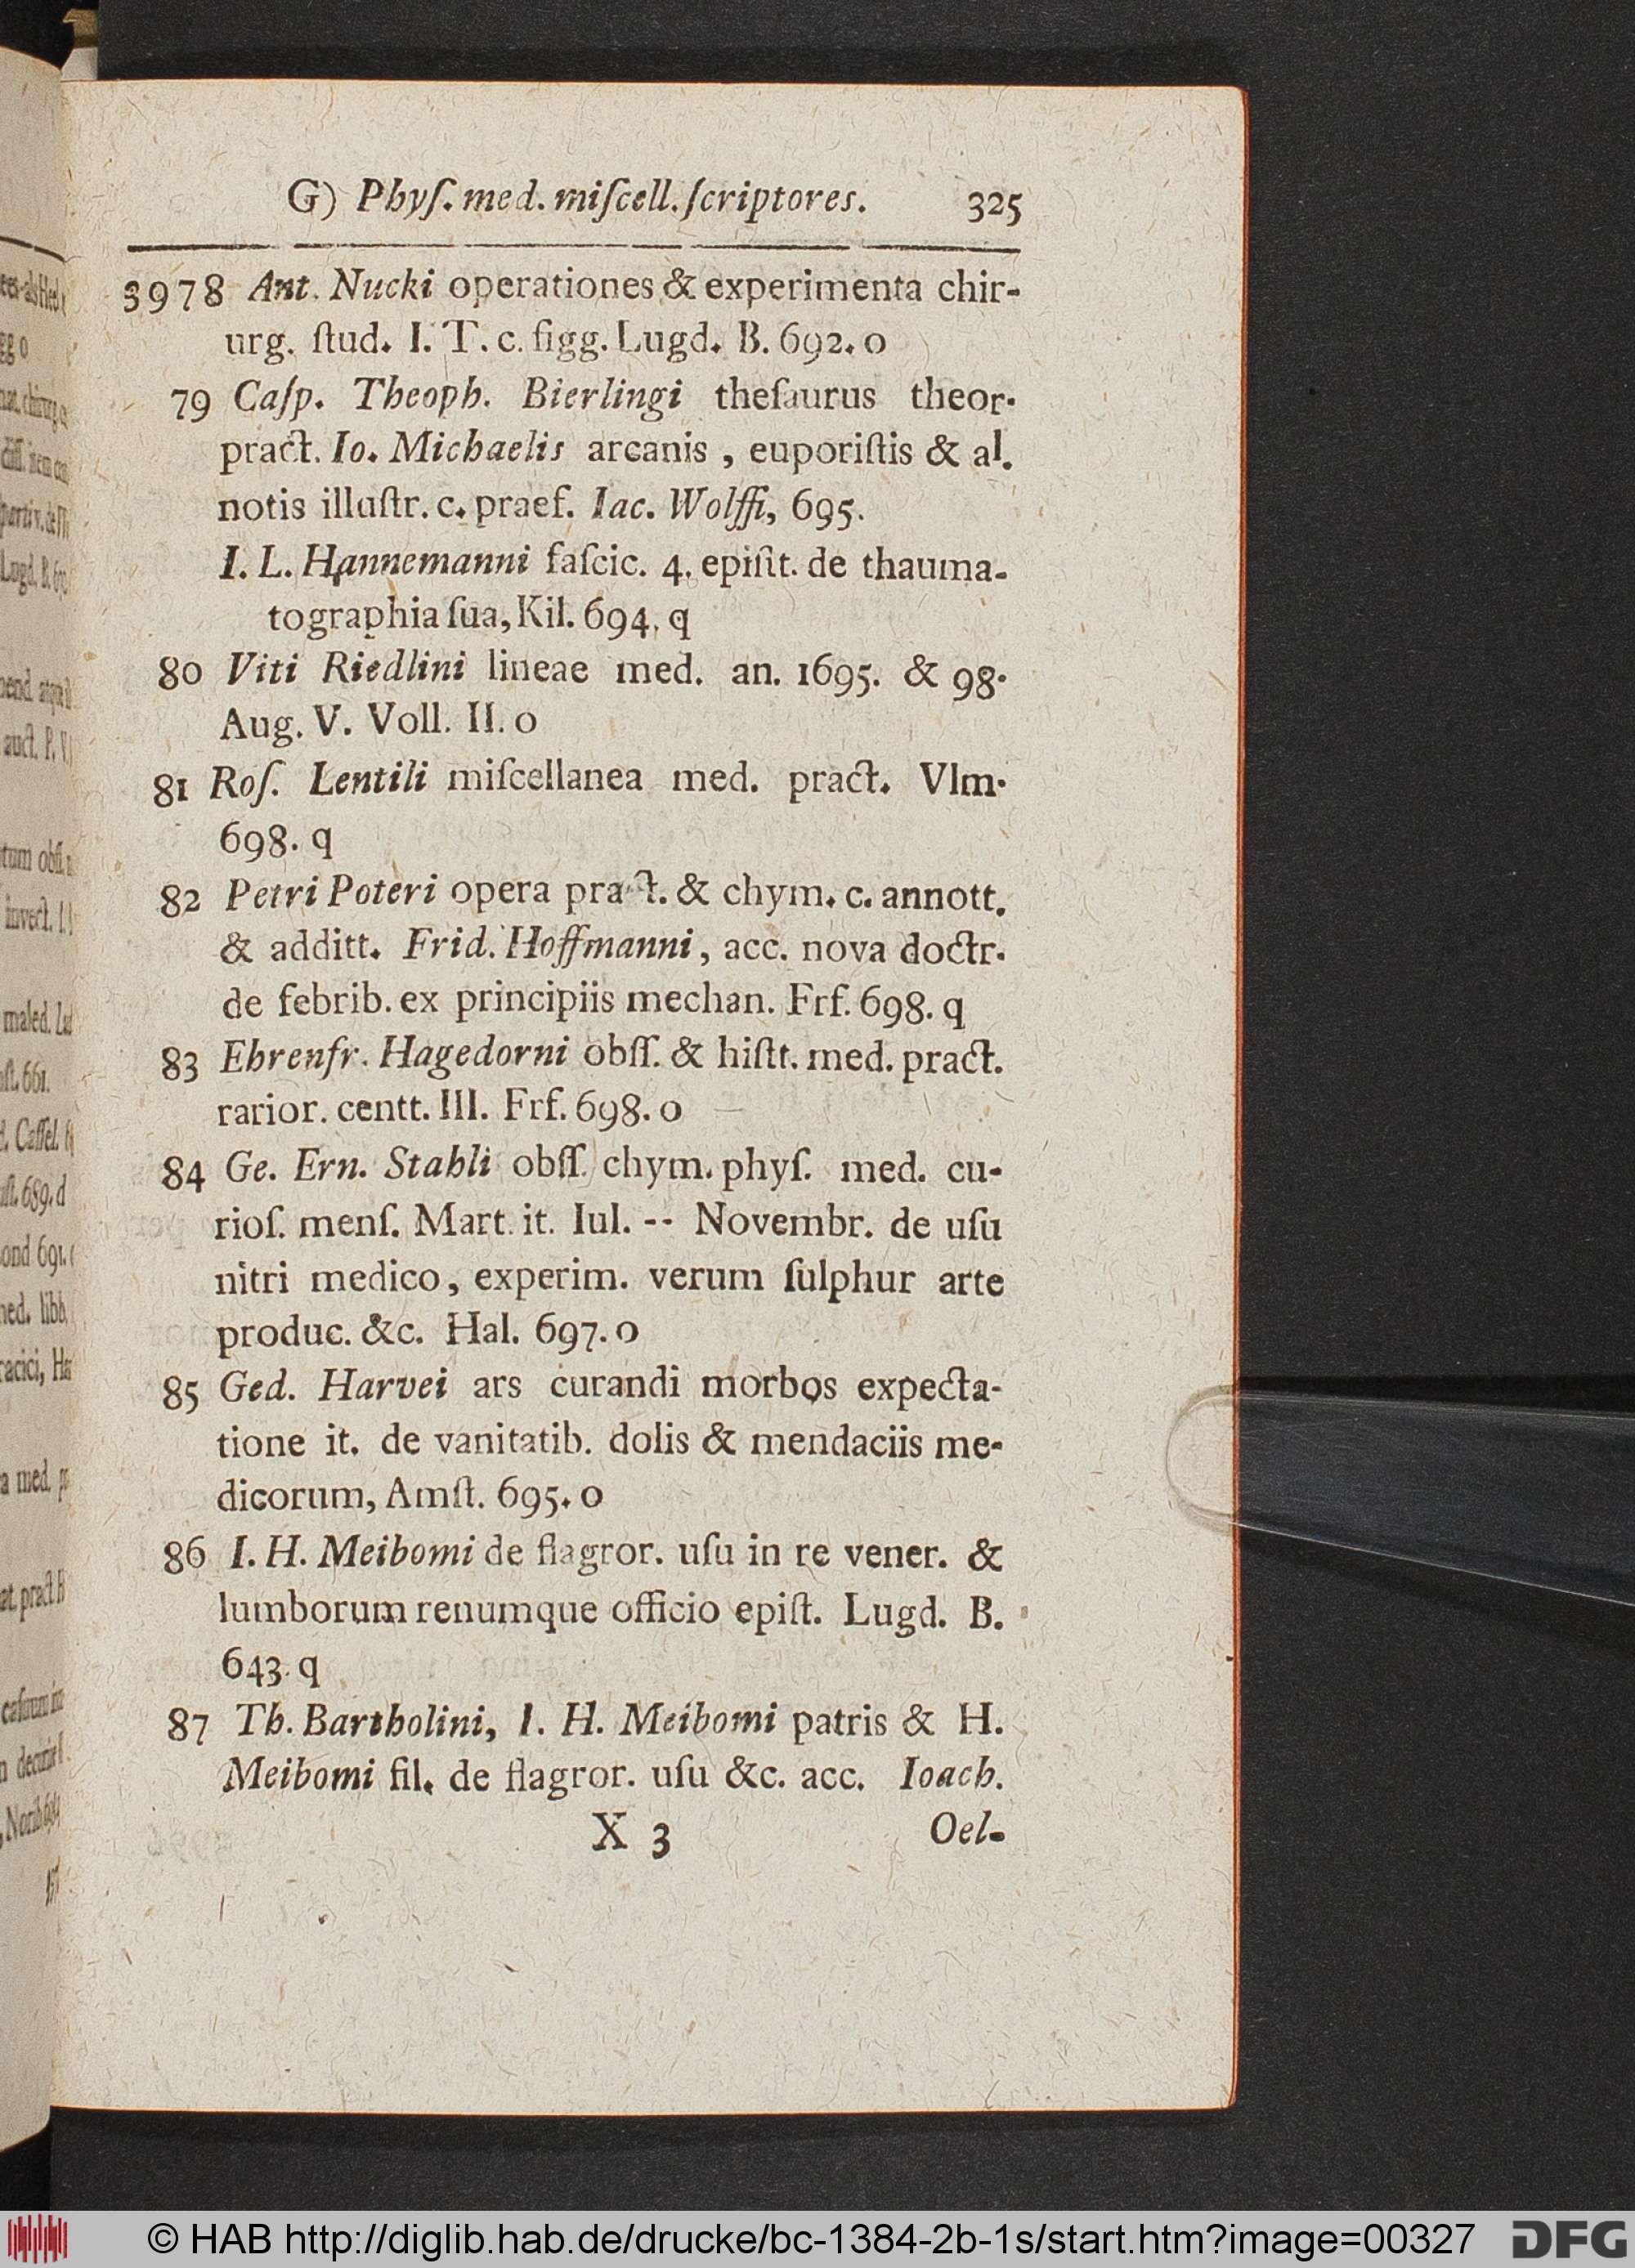 G) Phyſ. med. miſcell. ſcriptores. 325
3978 Ant. Nucki operationes & experimenta chir-
urg. ſtud. I. T. c. figg. Lugd. B. 692. o
79 Caſp. Theoph. Bierlingi theſaurus theor.
pract. Io. Michaelis arcanis , euporiſtis & al.
notis illuſtr. c. praef. Iac. Wolffi, 695.
I. L. Hannemanni faſcic. 4. epiſit. de thauma-
tographia ſua, Kil. 694. q
80 Viti Riedlini lineae med. an. 1695. & 98.
Aug. V. Voll. II. o
81 Roſ. Lentili miſcellanea med. pract. Vlm.
698. q
82 Petri Poteri opera pract. & chym. c. annott.
& additt. Frid. Hoffmanni, acc. nova doctr.
de febrib. ex principiis mechan. Frf. 698. q
83 Ehrenfr. Hagedorni obſſ. & hiſtt. med. pract.
rarior. centt. III. Frf. 698. o
84 Ge. Ern. Stahli obſſ. chym. phyſ. med. cu-
rioſ. menſ. Mart. it. Iul. -- Novembr. de uſu
nitri medico, experim. verum ſulphur arte
produc. &c. Hal. 697. o
85 Ged. Harvei ars curandi morbos expecta-
tione it. de vanitatib. dolis & mendaciis me-
dicorum, Amſt. 695. o
86 I. H. Meibomi de flagror. uſu in re vener. &
lumborum renumque officio epiſt. Lugd. B.
643. q
87 Th. Bartholini, I. H. Meibomi patris & H.
Meibomi fil. de flagror. uſu &c. acc. Ioach.
X 3 Oel-
© HAB http://diglib.hab.de/drucke/bc-1384-2b-1s/start.htm?image=00327 DFG